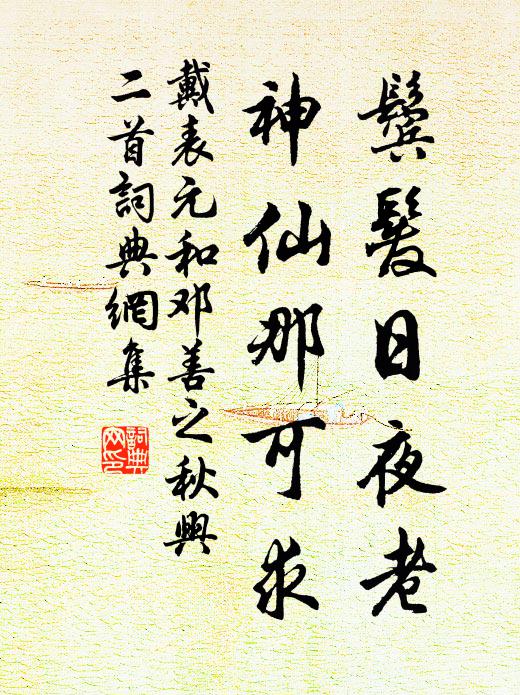 鬢髮日夜老
神仙那可求
戴表元和邓善之秋興
二首詞典網集
詞典
网印